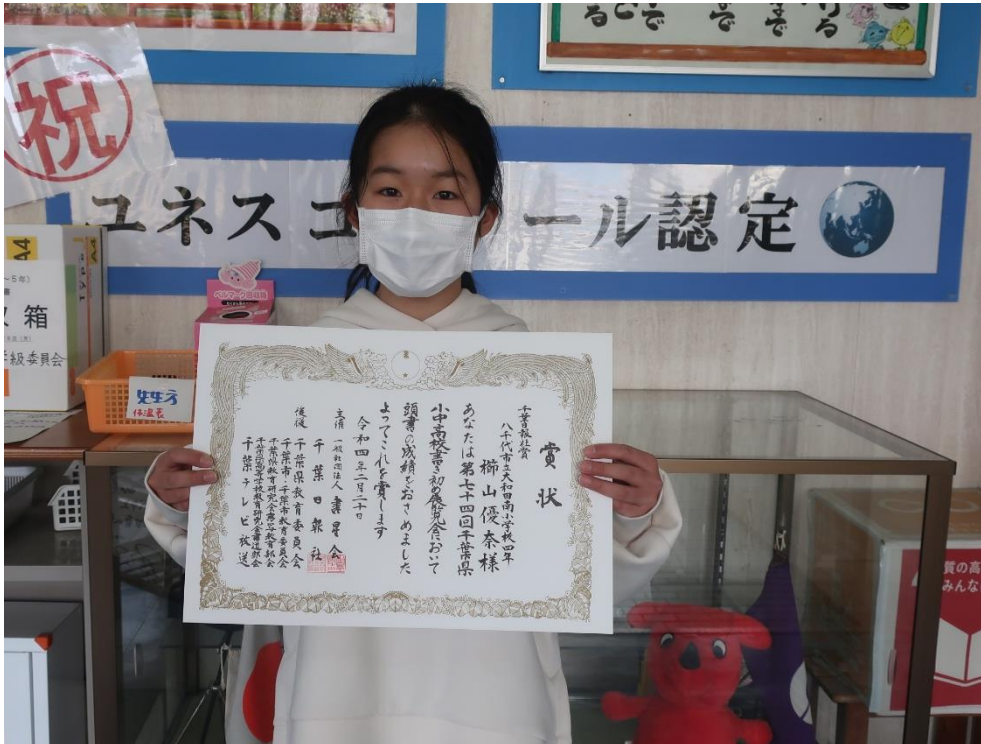 祝
ユネスコ
ール認定
A4
～5年)
箱
級委員会
ベルマーク回収箱
先生方
体温表
賞状
千葉日報社賞
八千代市立大和田南小学校四年
櫛山優奈様
あなたは第七十四回千葉県
小中高校書き初め展覧会において
頭書の成績をおさめました
よってこれを賞します
令和四年二月二十日
主催 一般社団法人 書星会
千葉日報社
後援 千葉県教育委員会
千葉市・千葉市教育委員会
千葉県教育研究会書写教育部会
千葉県高等学校教育研究会書道部会
千葉テレビ放送
質の高
みんな